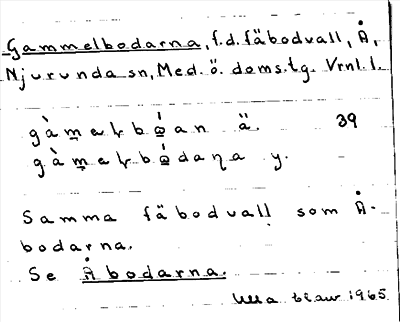 Gammelbodarna, f.d. fäbodvall, Å,
Njurunda sn, Med. ö. doms.tg. Vrnl. l.
gàm̲eɫbó̲an ä. 39
gàm̲eɫbó̲daɳa y.
Samma fäbodvall som Å-
bodarna.
Se Åbodarna.
Ulla 1965